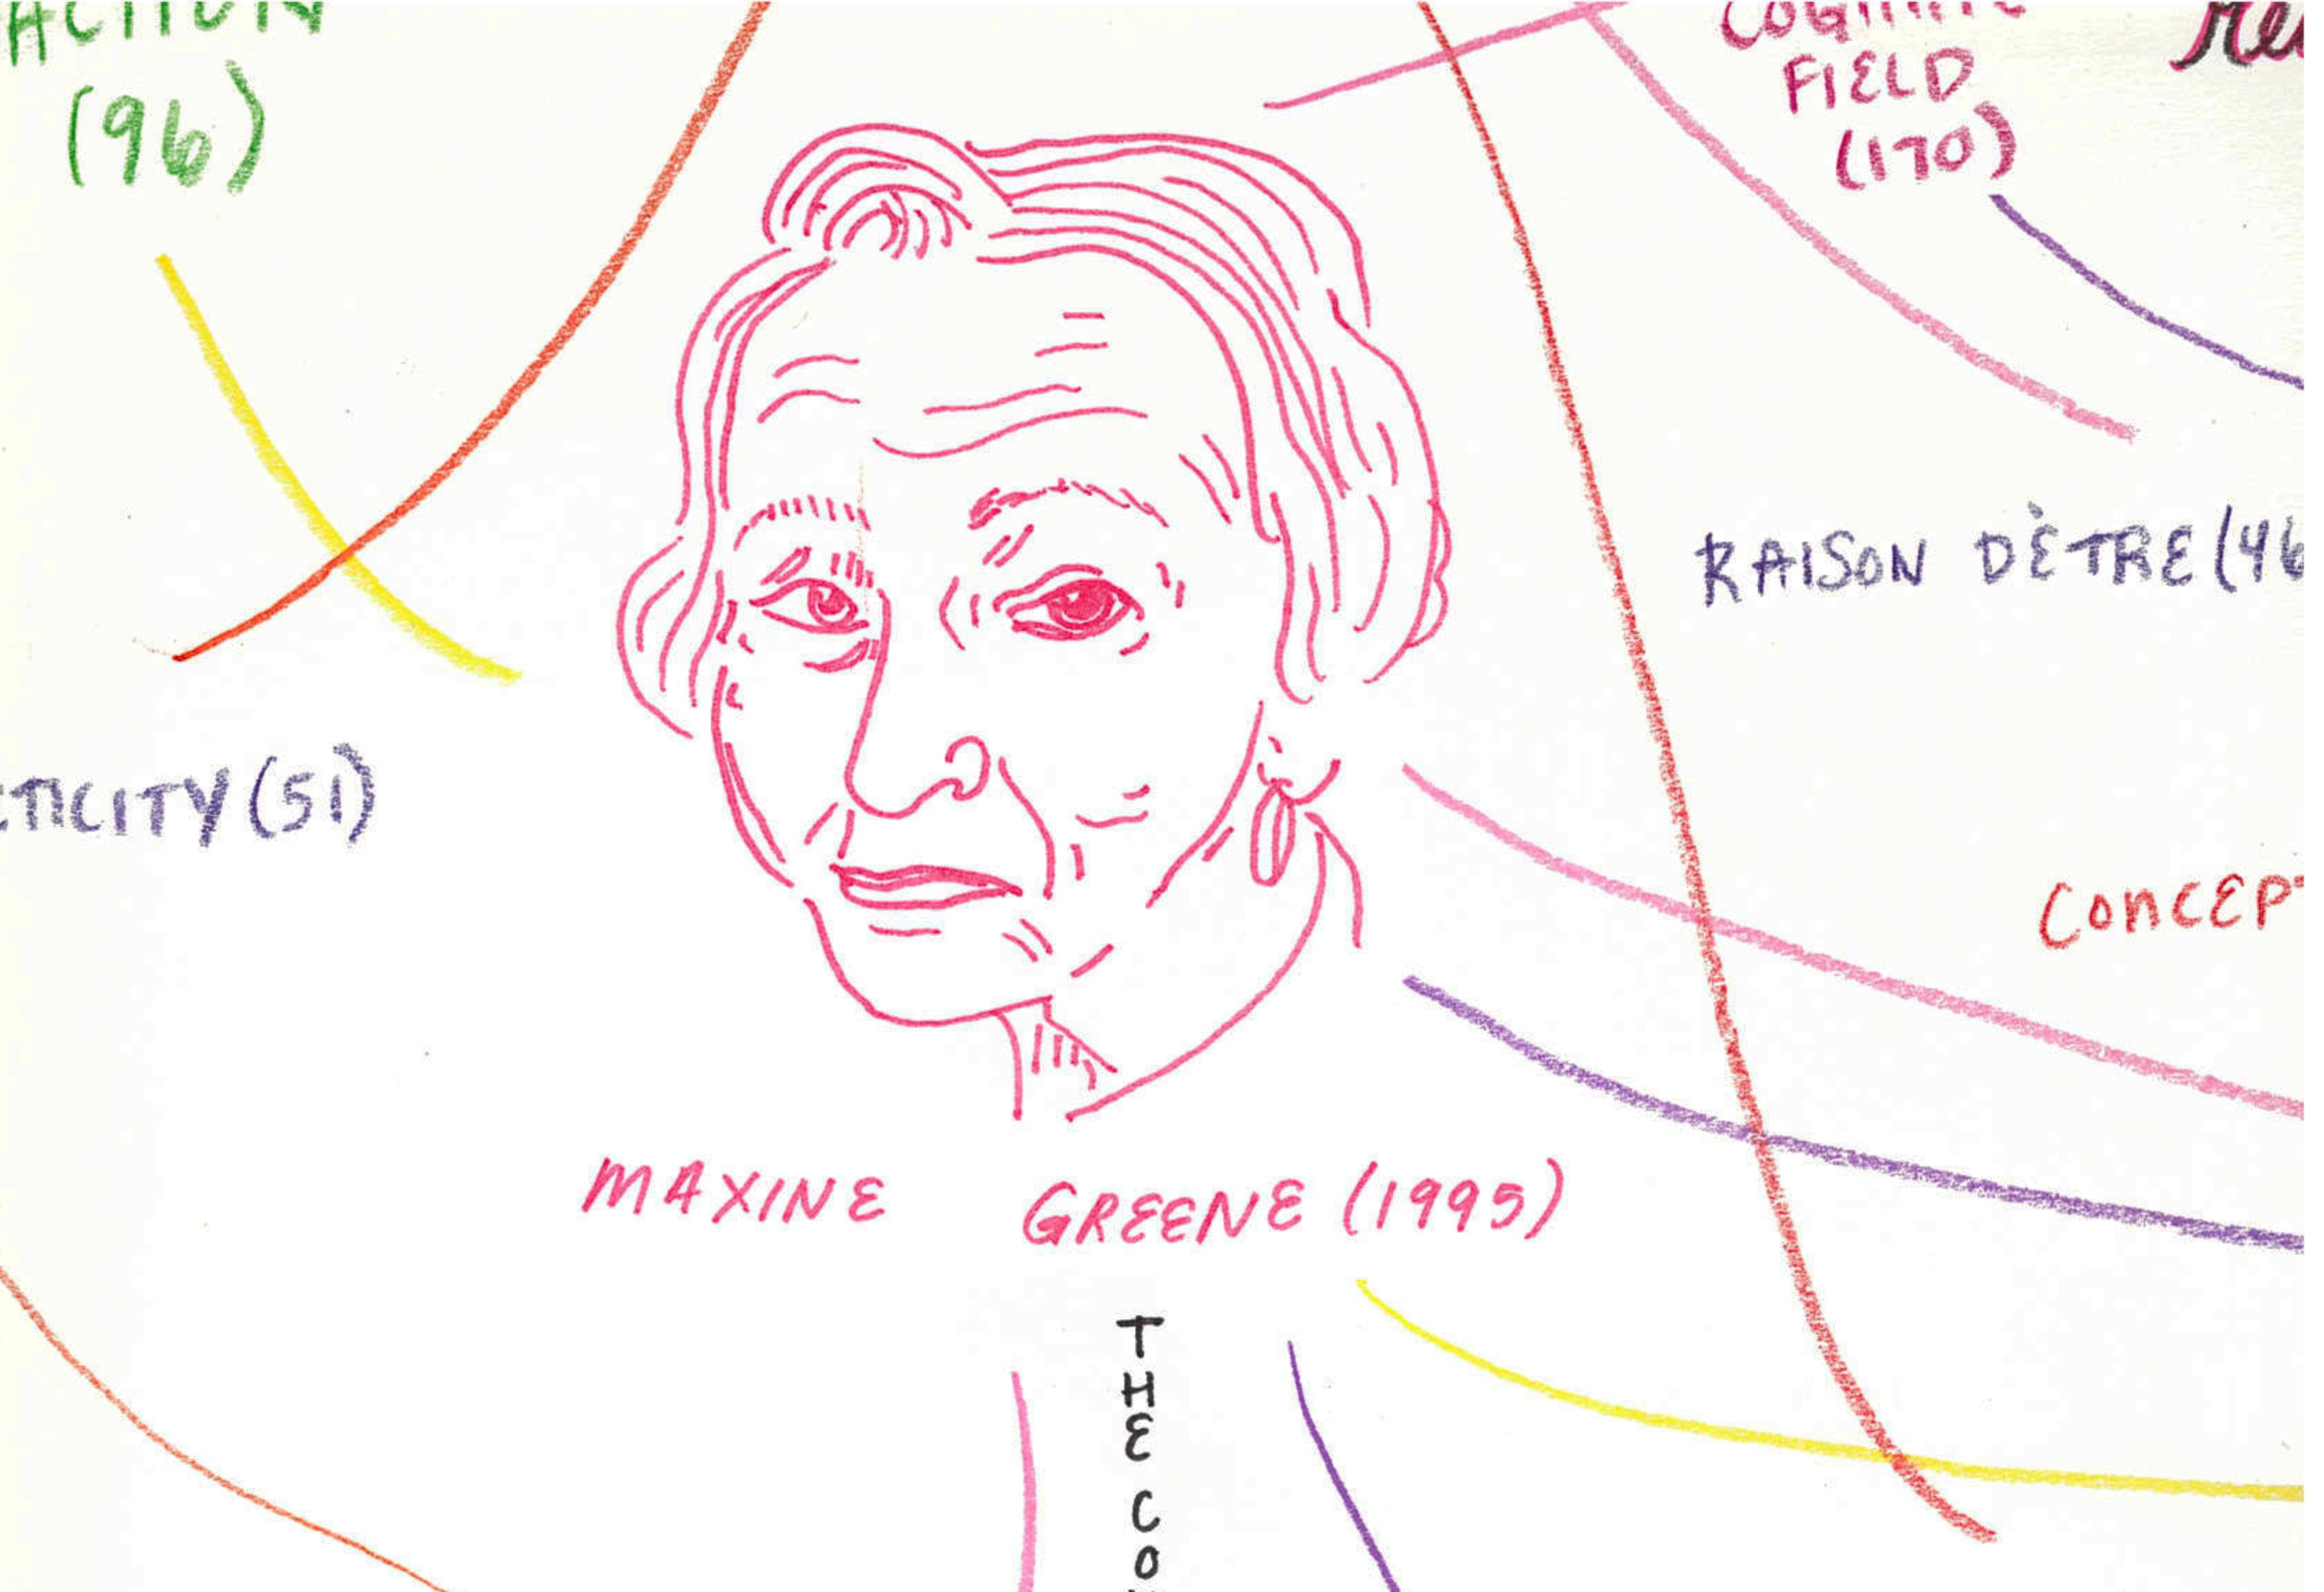 ACTION
(96)
COGNITIVE
FIELD
(170)
RAISON D'ÈTRE (46
TICITY (51)
CONCEPT
MAXINE GREENE (1995)
THE CO